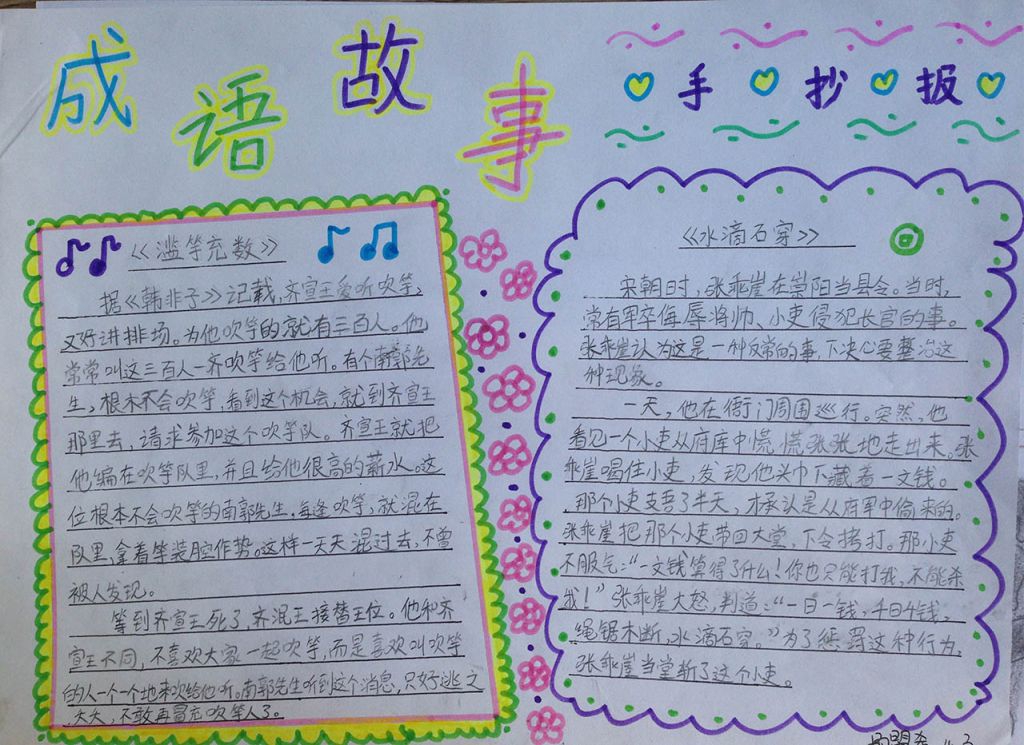 成语故事
手抄报
《滥竽充数》
据《韩非子》记载,齐宣王爱听吹竽,
又好讲排场。为他吹竽的就有三百人。他
常常叫这三百人一齐吹竽给他听。有个南郭先
生,根本不会吹竽,看到这个机会,就到齐宣王
那里去,请求参加这个吹竽队。齐宣王就把
他编在吹竽队里,并且给他很高的薪水。这
位根本不会吹竽的南郭先生,每逢吹竽,就混在
队里,拿着竽装腔作势。这样一天天混过去,不曾
被人发现。
等到齐宣王死了,齐混王接替王位。他和齐
宣王不同,不喜欢大家一起吹竽,而是喜欢叫吹竽
的人一个一个地来吹给他听。南郭先生听到这个消息,只好逃之
夭夭,不敢再冒充吹竽人了。
《水滴石穿》
宋朝时,张乖崖在崇阳当县令。当时,
常有军卒侮辱将帅、小吏侵犯长官的事。
张乖崖认为这是一种反常的事,下决心要整治这
种现象。
一天,他在衙门周围巡行。突然,他
看见一个小吏从府库中慌慌张张地走出来。张
乖崖喝住小吏,发现他头巾下藏着一文钱。
那个小吏支吾了半天,才承认是从府库中偷来的。
张乖崖把那个小吏带回大堂,下令拷打。那小吏
不服气:“一文钱算得了什么!你也只能打我,不能杀
我!”张乖崖大怒,判道:“一日一钱,千日千钱,
绳锯木断,水滴石穿。”为了惩罚这种行为,
张乖崖当堂斩了这个小吏。